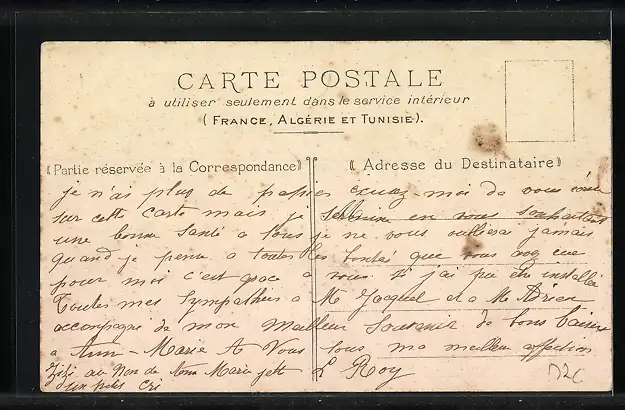 CARTE POSTALE
à utiliser seulement dans le service intérieur
(FRANCE, ALGÉRIE ET TUNISIE).
(Partie réservée à la Correspondance)
(Adresse du Destinataire)
je n'ai plus de papier moi de vous
sur cette carte mais je termine en vous souhaitant
une bonne santé a tous je ne vous oublierai jamais
quand je pense a toutes les bontés que vous avez eue
pour moi c'est grace a vous si j'ai pu être installé
Toutes mes sympathies a Mr Jacquel et a Mr Adrien
accompagné de mon meilleur Souvenir de bons baisers
a Marie A Vous tous ma meilleur affection
au Nom de Marie L Roy
un cri